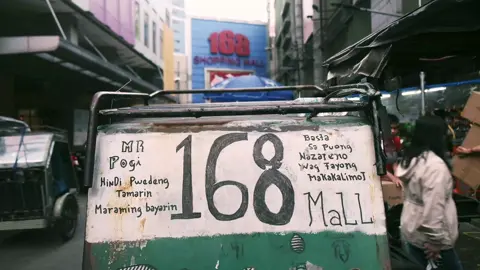 168
SHOPPING MALL
MR
Pogi
HiNDi Pwedeng
Tamarin
Maraming bayarin
168
Basta
Sa Puong
Nazareno
Wag Tayong
MaKaKaLimoT
MaLL